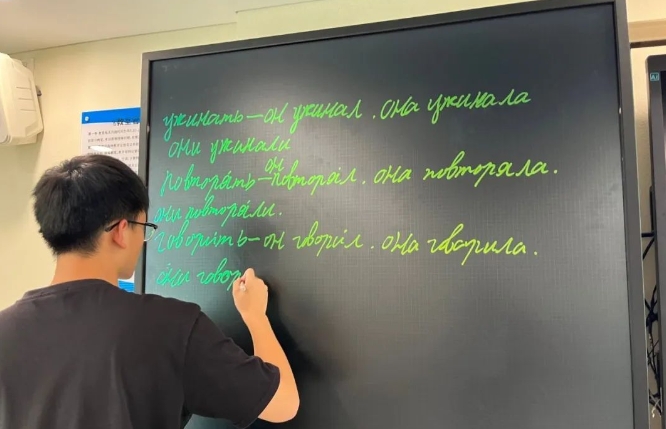 ужинать — он ужинал. она ужинала
они ужинали
Повторять — он повторял. она повторяла.
они повторяли.
Говорить — он говорил. она гварила.
они говор